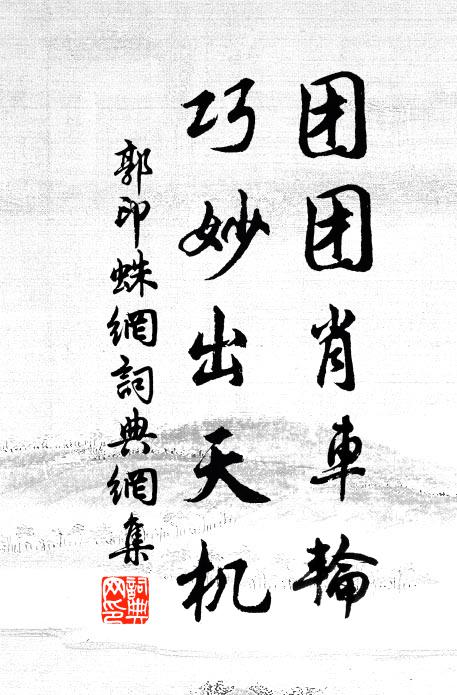 团团肖車輪
巧妙出天机
郭印蛛網詞典網集
詞典
网印